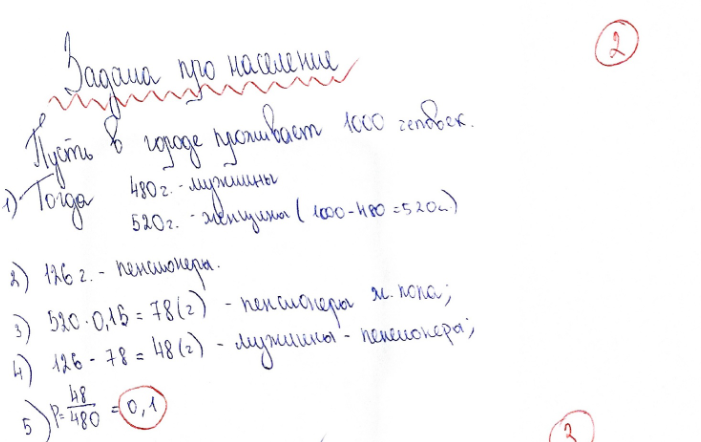 2
Задача про население
Пусть в городе проживает 1000 человек.
1) Тогда 480 ч. - мужчины
520 ч. - женщины (1000-480=520ч.)
2) 126 ч. - пенсионеры.
3) 520 · 0,15 = 78 (ч) - пенсионеры ж. пола;
4) 126 - 78 = 48 (ч) - мужчины - пенсионеры;
5) p = 48/480 = 0,1
2